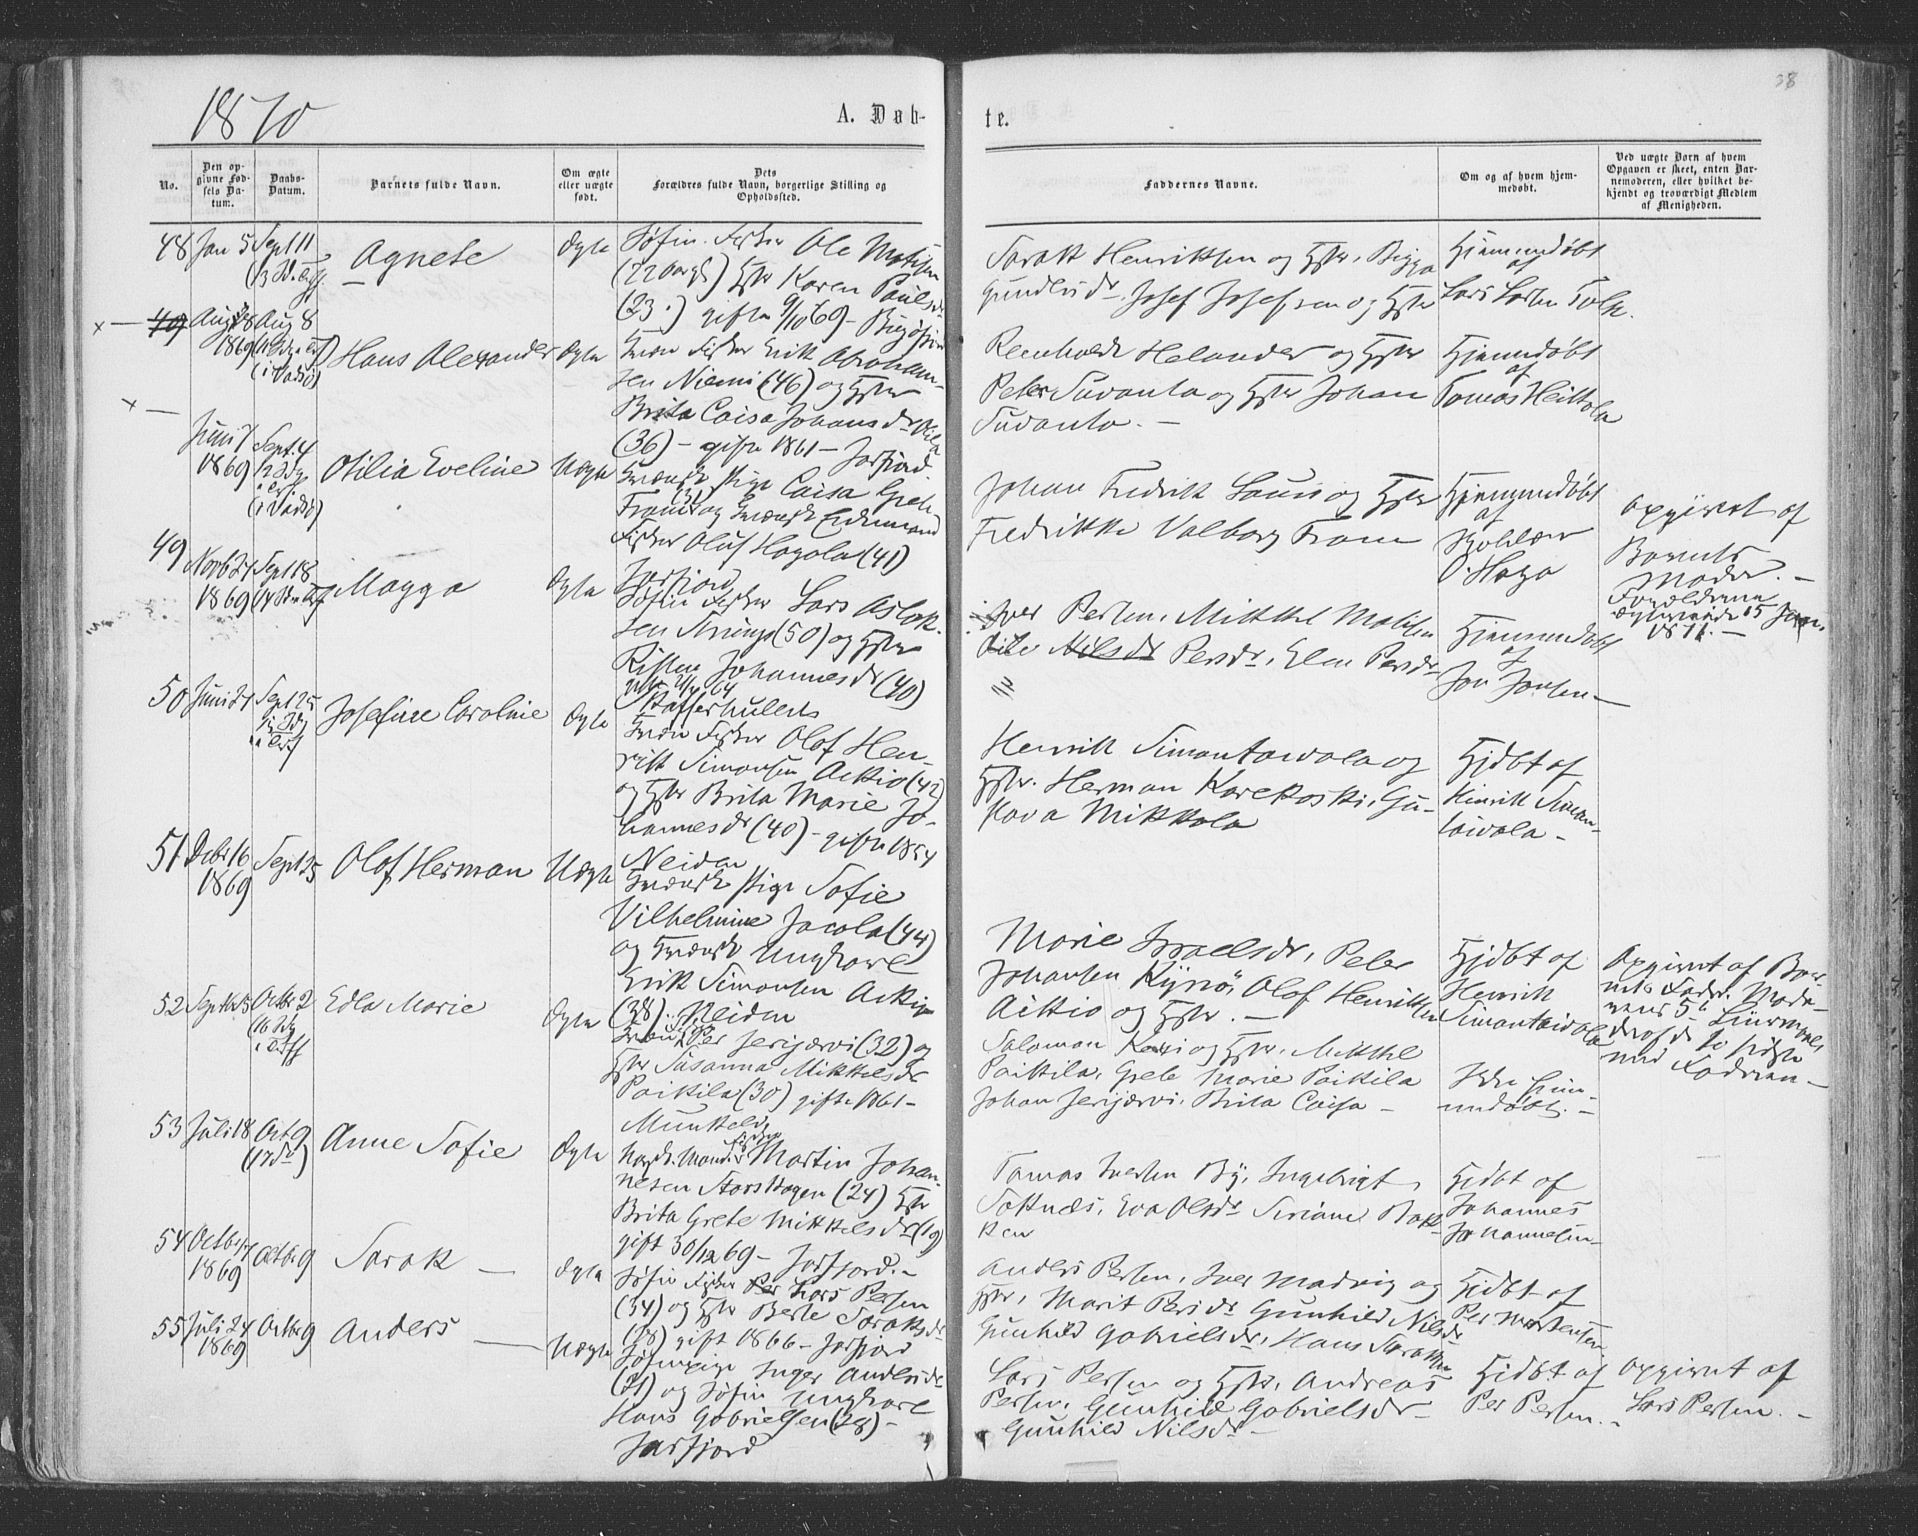 38
1870
A. Døb-
te.
No.
Den op-
givne Fød-
sels Da-
tum.
Daabs-
Datum.
Barnets fulde Navn.
Om ægte
eller uægte
født.
Dets
Forældres fulde Navn, borgerlige Stilling og
Opholdssted.
Faddernes Navne.
Om og af hvem hjem-
medøbt.
Ved uægte Børn af hvem
Opgaven er skeet, enten Bar-
nemoderen, eller hvilket be-
kjendt og troværdigt Medlem
af Menigheden.
48 Jan 5 Sept 11
Agnete
Ægte
Søfin. Fisker Ole Mathisen
(22 aar gl) Hstr Karen Paulsdr
(23.) gifte 9/10 69 - Bugøfjord
Sarak Henriksen og Hstr, Bigga
Gundersdr, Josef Josefsen og Hstr
Hjemmedøbt
af
Lars Larsen Tolk.
x — 49 Aug 28 Aug 8
1869
(i Vadsø)
Hans Alexander
Ægte
Qvæn Fisker Erik Abraham-
sen Niemi (46) og Hstr
Brita Caisa Johansdr
(36) - gifte 1861 - Jarfjord
Reinholdt Helander og Hstr
Peter Suvanto og Hstr Johan
Suvanto. —
Hjemmedøbt
af
Tomas Heittola
x —
Juni 7 Sept. 4
1869
(i Vadsø)
Otilia Eveline
Uægte
Qvænsk Pige Caisa Greta
Fram (31) og Qvænsk Enkemand
Fisker Oluf Hagola (41)
Jarfjord
Johan Fredrik Lauri og Hstr
Fredrikke Valborg Fram
Hjemmedøbt
af
Haga
Opgivet af
Barnets
Moder. —
Forældrene
ægteviede 15 Jan.
1871. —
49 Novb 27 Sept 18
1869
Magga
Ægte
Søfin Fisker Lars Aslak-
sen (50) og Hstr
Risten Johannesdr (40)
Iver Persen, Mikkel Mathisen
Nilsdr Persdr, Elen Persdr
Hjemmedøbt
af
Jon Jonsen —
50 Juni 27 Sept 25
Josefine Caroline
Ægte
Qvæn Fisker Olof Hen-
rik Simonsen Aikio (42)
og Hstr Brita Marie Jo-
hannesdr (40) - gifte 1854
Neiden
Henrik Simontaival og
Hstr. Herman Karekoski, Gu-
stava Mikkola
Hjdbt af
Henrik Simon-
taival. —
51 Decbr 16 Sept 25
1869
Olof Herman
Uægte
Qvænsk Pige Sofie
Vilhelmine Jacola (44)
og Qvænsk Ungkarl
Erik Simonsen Aikio
(38). Neiden
Marie Israelsdr, Peter
Johansen Kyrö, Olof Henriksen
Aikio og Hstr. —
Hjdbt af
Henrik
Simontaival
Opgivet af Bar-
nets Fader. Mode-
rens 5te Leiermaal
deraf de to sidste
med Faderen —
52 Septbr 25 Octbr 2
Edla Marie
Ægte
Qvæn Per Jerijærvi (32) og
Hstr Susanna Mikkelsdr
Paikila (30) gifte 1861 -
Munkelv
Salomon og Hstr, Mikkel
Paikila, Grete Marie Paikila
Johan Jerijærvi, Brita Caisa —
Ikke hjem-
medøbt. —
53 Juli 18 Oct 9
Anne Sofie
Ægte
Martin Johan-
nesen Storskogen (24) Hstr
Brita Grete Mikkelsdr (19)
gift 30/12 69 - Jarfjord. -
Tomas Iversen By, Ingebrigt
Sottnæs, Eva Olsdr Siriane Bak-
ken
Hjdbt af
Johannes
Johannesen —
54 Octbr 7 Octbr 9
1869
Sarak —
Ægte
Søfin Fisker Per Lars Persen
(34) og Hstr Berte Saraksdr
(28) gift 1866 - Jarfjord
Anders Persen, Iver Madvig og
Hstr, Marit Persdr Gunhild Nilsdr
Gunhild Gabrielsdr, Hans Saraksen
Hjdbt af
Per Mortensen
55 Juli 24 Octbr 9
1869
Anders —
Uægte
Søfinpige Inger Andersdr
(21) og Søfin Ungkarl
Hans Gabrielsen (28) -
Jarfjord
Lars Persen og Hstr, Andreas
Persen, Gunhild Gabrielsdr —
Gunhild Nilsdr —
Hjdbt af
Per Persen. —
Opgivet af
Lars Persen. —